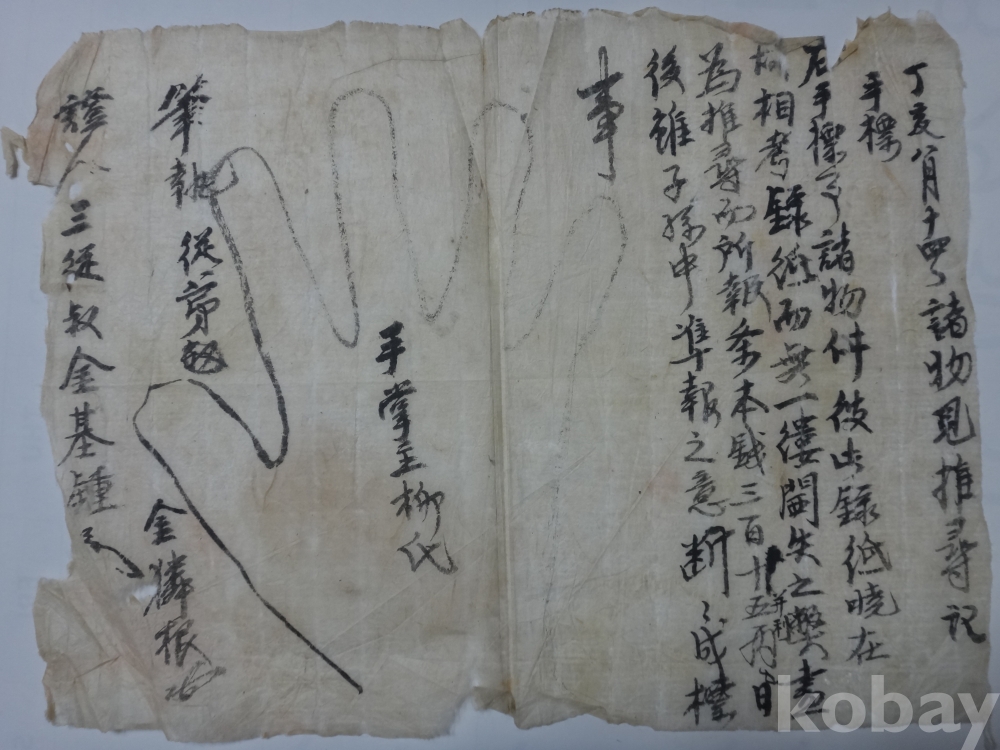 丁亥八月十四日諸物見推尋記
手標
右手標事諸物件彼此錄紙曉在
相考錄紙而無一縷闕失之弊
為推尋而所報条本錢三百廿五兩
後雖子孫中準報之意斷〻成標
事
手掌主柳氏
筆執 從弟 金麟根
證人 三從叔金基鍾
kobay